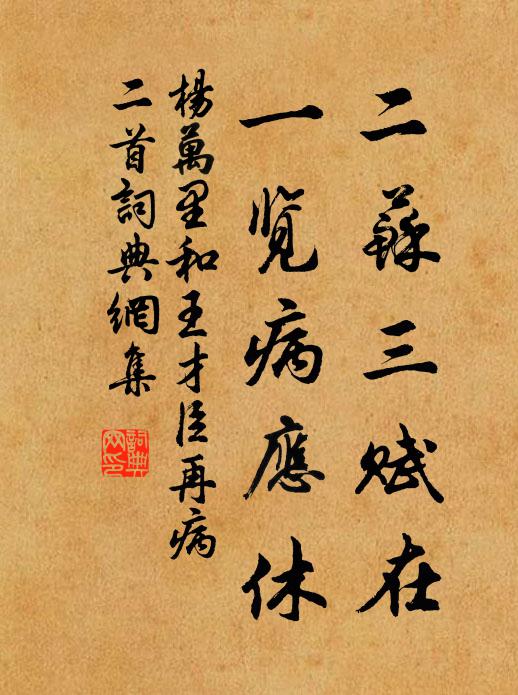 二蘇三賦在
一覽病應休
楊萬里和王才臣再病
二首詞典網集
詞典網印